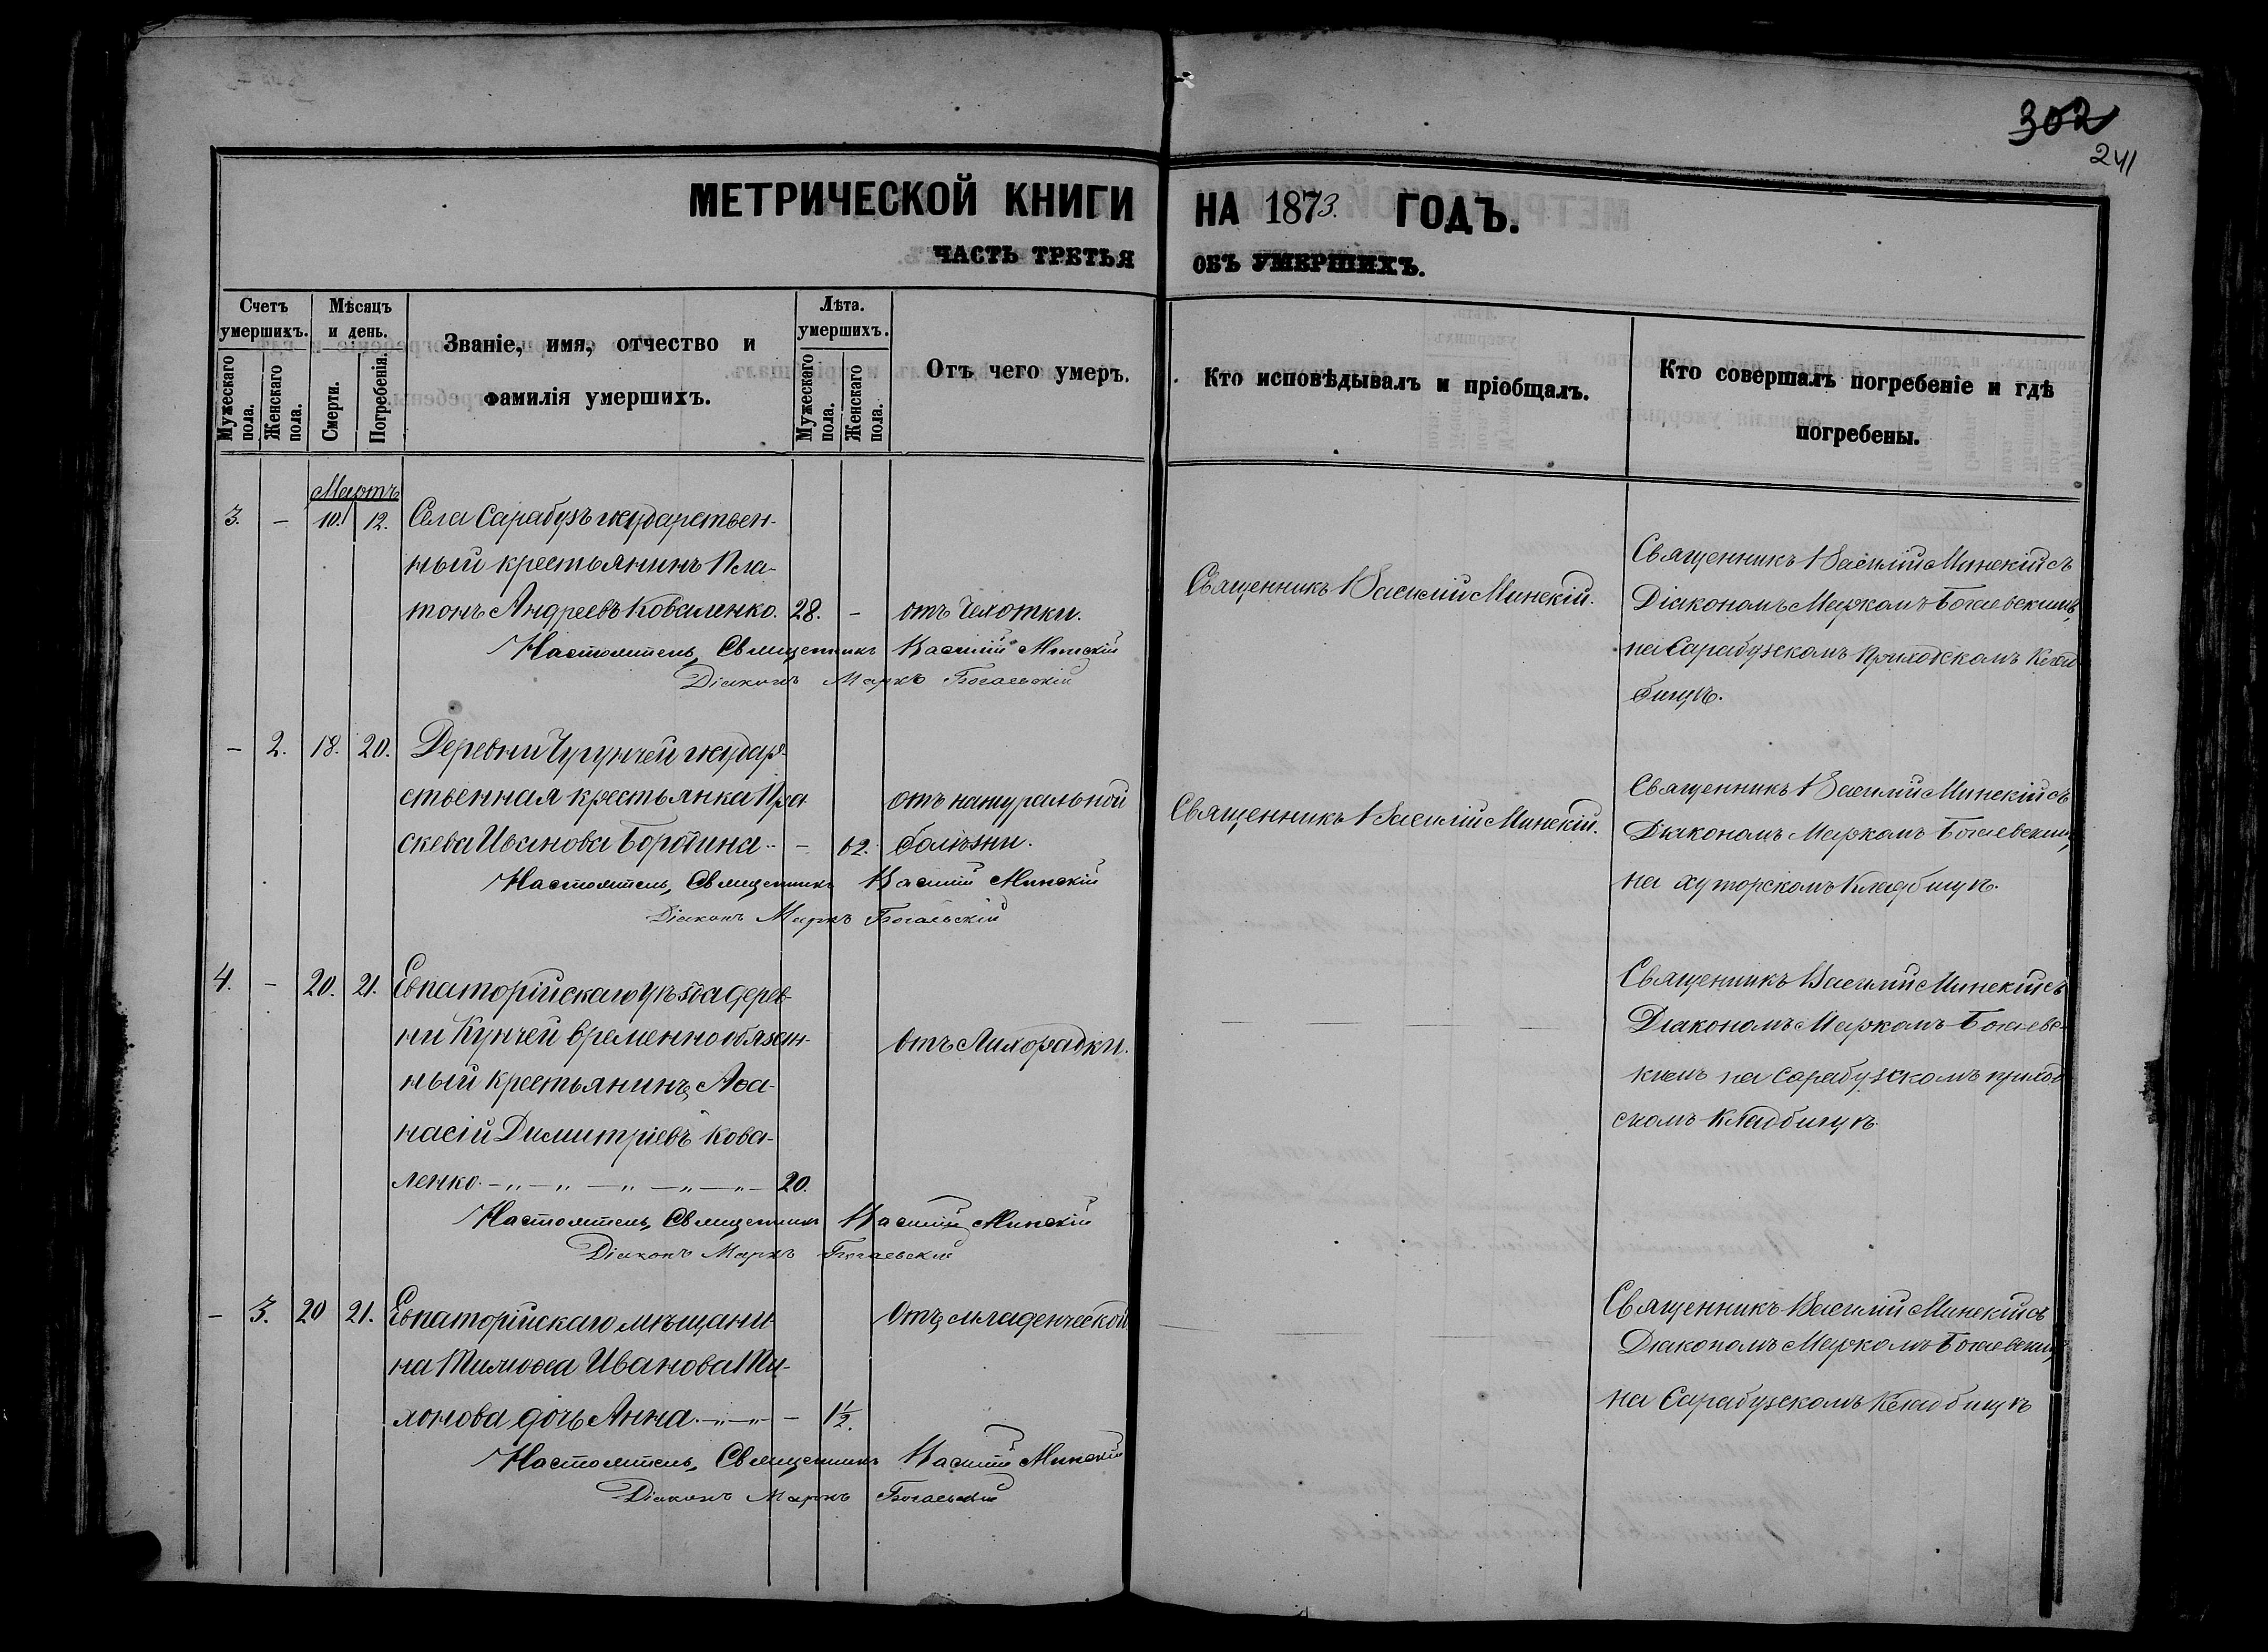 302
241
МЕТРИЧЕСКОЙ КНИГИ НА 1873. ГОДЪ.
ЧАСТЬ ТРЕТЬЯ ОБЪ УМЕРШИХЪ.
Счетъ умершихъ.
Мужескаго пола.
Женскаго пола.
Мѣсяцъ и день.
Смерти.
Погребенія.
Званіе, имя, отчество и
фамилія умершихъ.
Лѣта. умершихъ.
Мужескаго пола.
Женскаго пола.
Отъ чего умеръ.
Кто исповѣдывалъ и пріобщалъ.
Кто совершалъ погребеніе и гдѣ
погребены.
Мартъ
3. – 10. 12. Села Сарабузъ государствен-
ный крестьянинъ Пла-
тонъ Андреевъ Коваленко. 28. – отъ Чахотки.
Священникъ Василій Минскій.
Священникъ Василій Минскій съ
Діакономъ Маркомъ Богаевскимъ,
на Сарабузскомъ приходскомъ клад
бищѣ.
Настоятель, Священникъ Василій Минскій
Діаконъ Маркъ Богаевскій
– 2. 18. 20. Деревни Чугунчей государ-
ственная крестьянка Пра
скева Иванова Бородина – 62. отъ натуральной
болѣзни.
Священникъ Василій Минскій.
Священникъ Василій Минскій съ
Діакономъ Маркомъ Богаевским,
на хуторскомъ кладбищѣ.
Настоятель, Священникъ Василій Минскій
Діаконъ Маркъ Богаевскій
4. – 20. 21. Евпаторійскаго уѣзда дерев-
ни Кунчей временнообязан-
ный крестьянинъ Аѳа-
насій Димитріевъ Кова-
ленко. – „ – „ – „ – „ – „ – 20.
отъ Лихорадки.
Священникъ Василій Минскій съ
Діакономъ Маркомъ Богаевс-
кимъ на Сарабузскомъ приход
скомъ кладбищѣ.
Настоятель, Священникъ Василій Минскій
Діаконъ Маркъ Богаевскій
– 3. 20 21. Евпаторійскаго мѣщани
на Тимоѳея Иванова Ти-
хонова дочь Анна. – „ – „ – 1½.
Отъ младенческой
Священникъ Василій Минскій съ
Діакономъ Маркомъ Богаевским,
на Сарабузскомъ кладбищѣ
Настоятель, Священникъ Василій Минскій
Діаконъ Маркъ Богаевскій